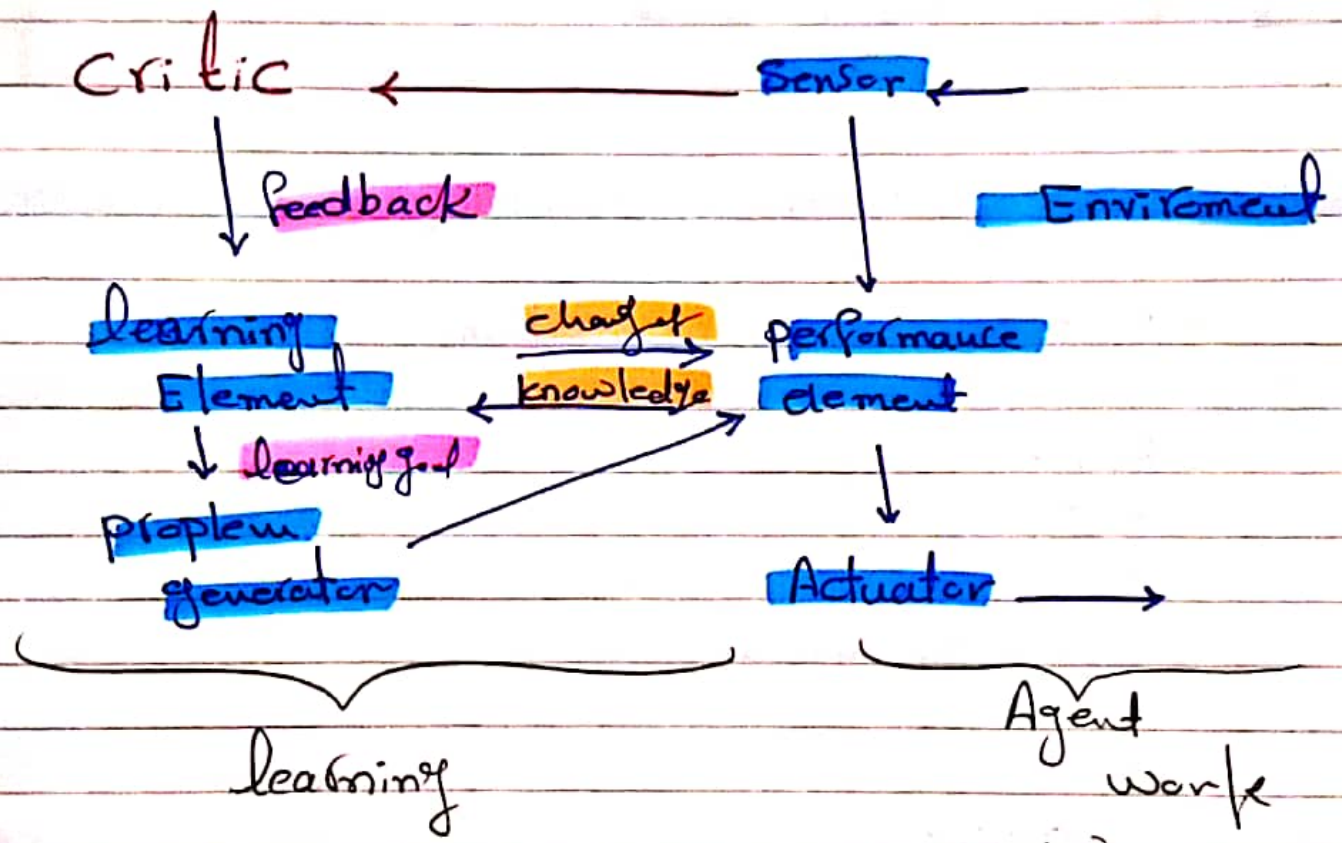 Critic
Sensor
feedback
Enviroment
learning
Element
changes
knowledge
performance
element
learning goal
proplem
generator
Actuator
learning
Agent
work